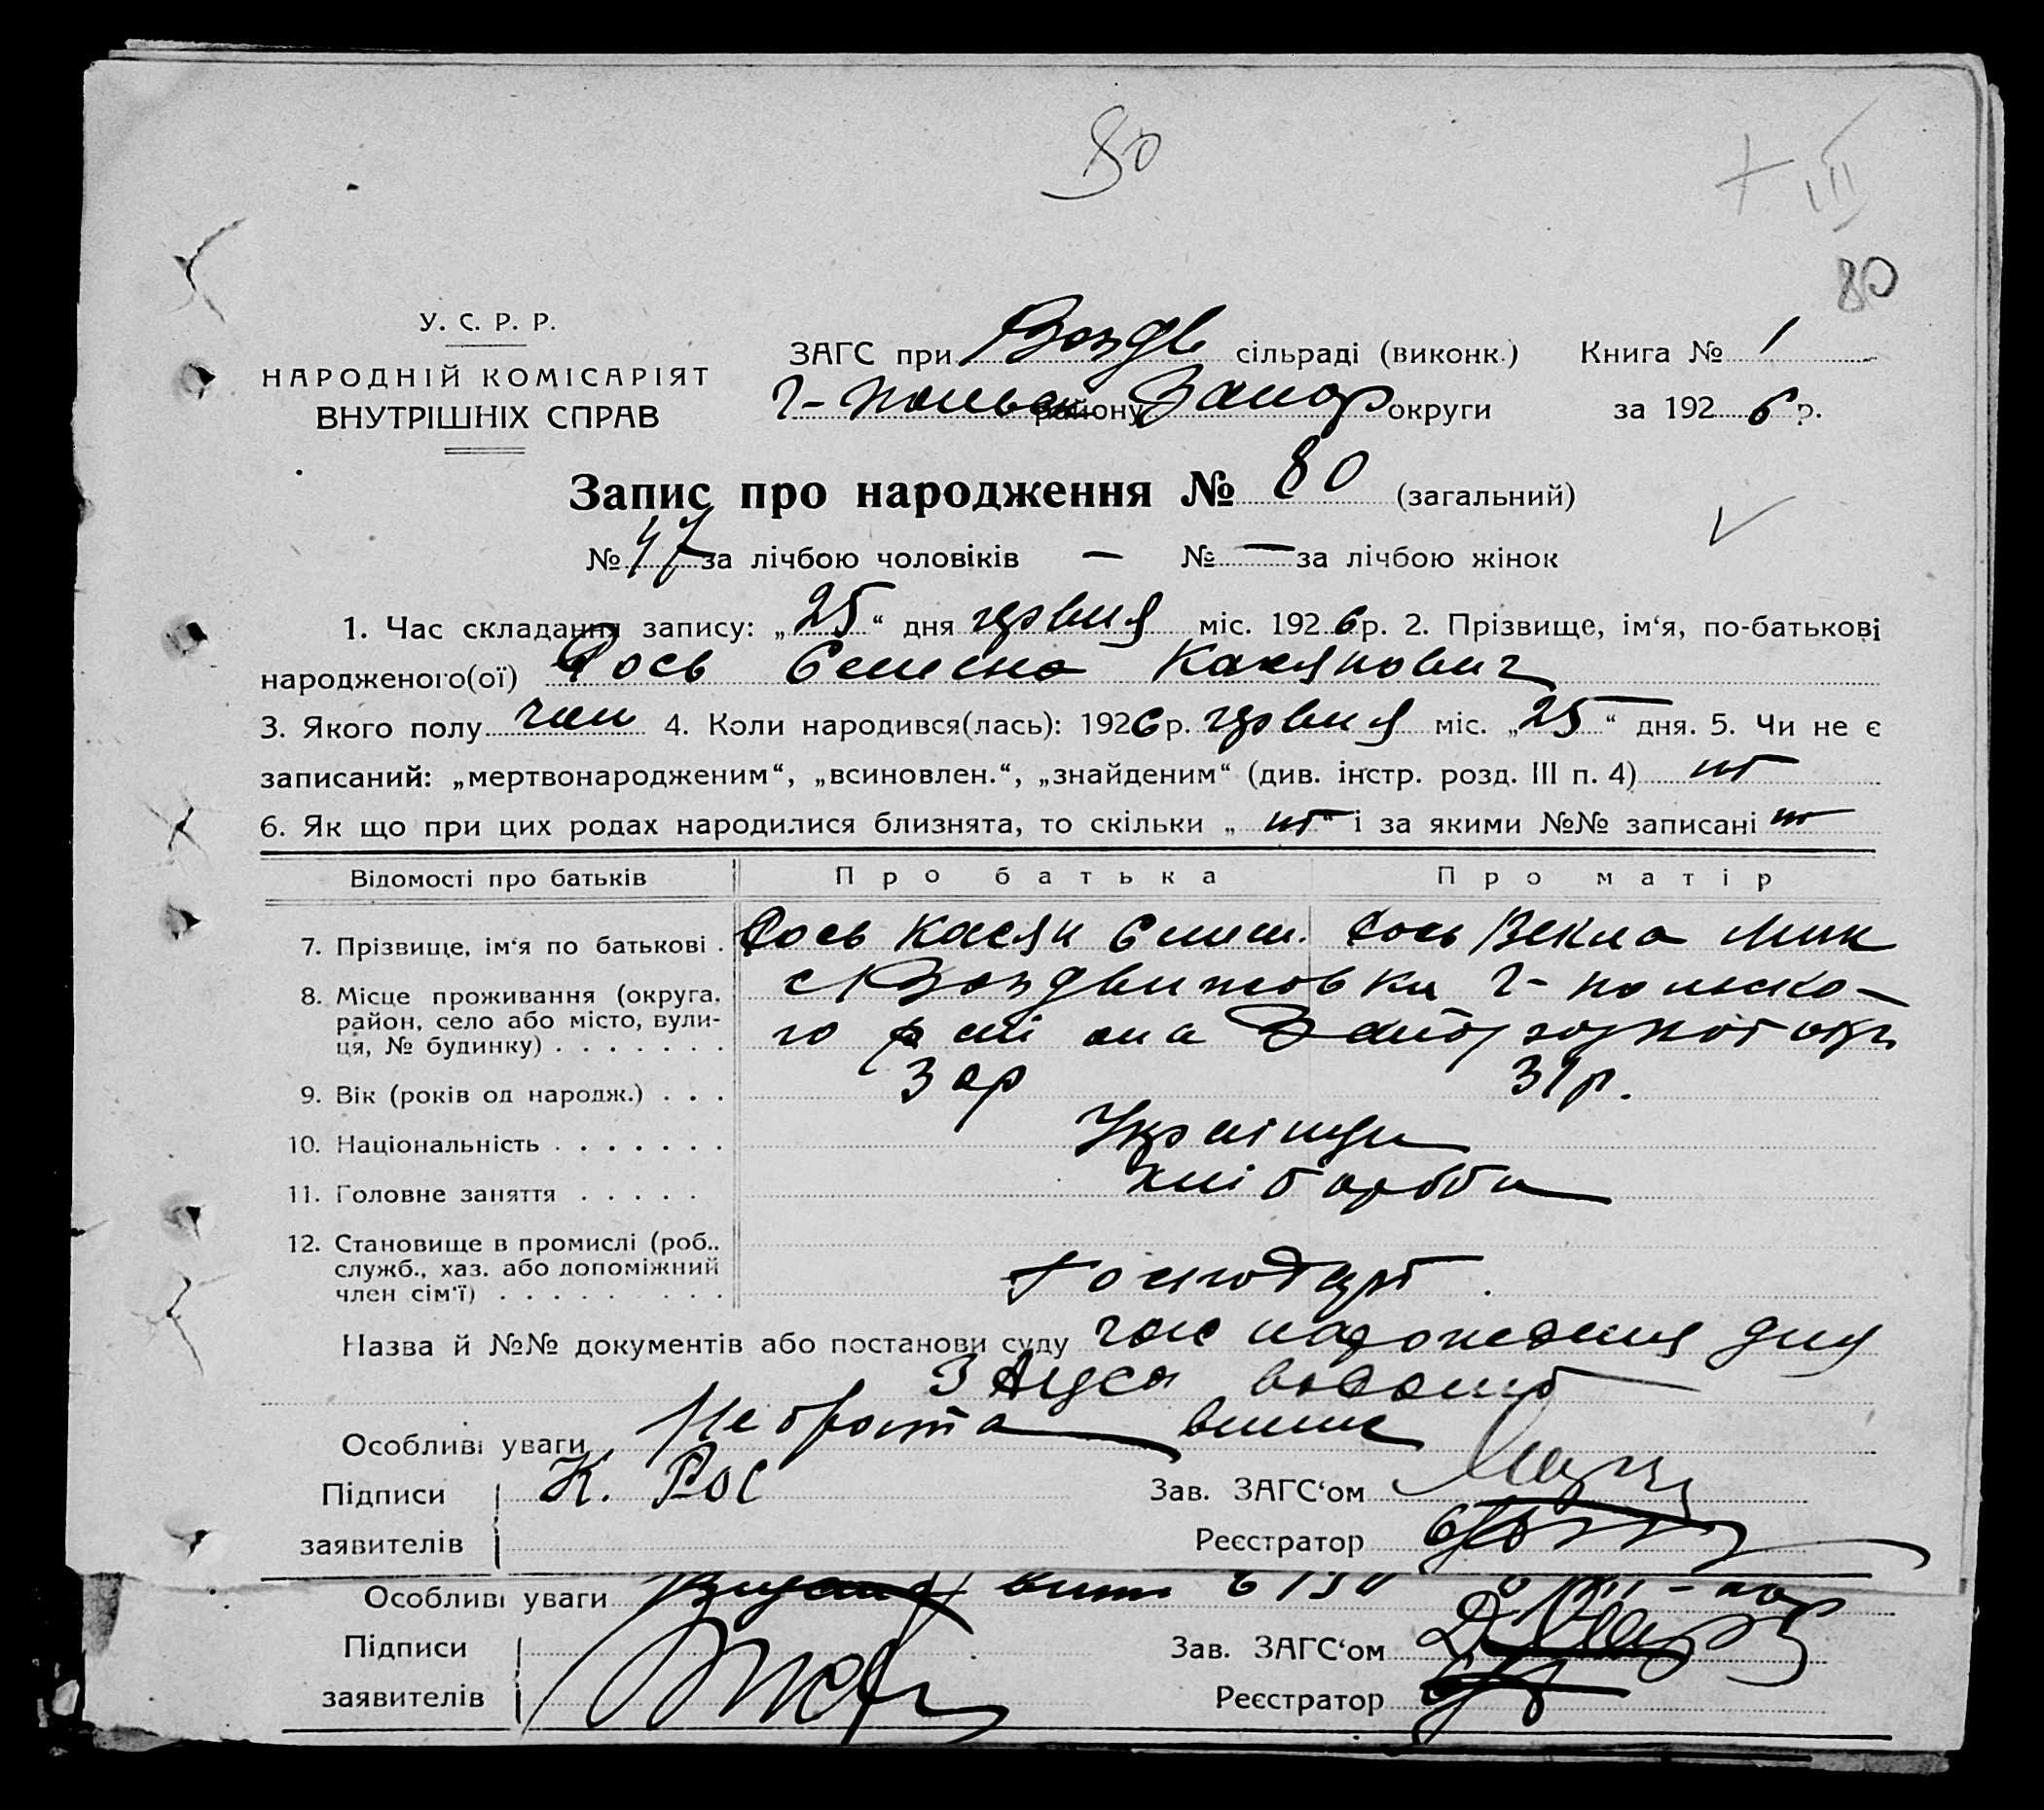 80
+ III
80
У. С. Р. Р.
НАРОДНІЙ КОМІСАРІЯТ
ВНУТРІШНІХ СПРАВ
ЗАГС при Воздв сільраді (виконк.) Книга № 1
Г-польск району Запор округи за 1926 р.
Запис про народження № 80 (загальний)
№ 47 за лічбою чоловіків — № — за лічбою жінок
1. Час складання запису: „25“ дня червня міс. 1926 р. 2. Прізвище, ім‘я, по-батькові
народженого(ої) Рось Касянович
3. Якого полу чол 4. Коли народився(лась): 1926 р. червня міс. „25“ дня. 5. Чи не є
записаний: „мертвонародженим“, „всиновлен.“, „знайденим“ (див. інстр. розд. III п. 4) ні
6. Як що при цих родах народилися близнята, то скільки „ ні “ і за якими №№ записані ні
Відомості про батьків Про батька Про матір
7. Прізвище, ім‘я по батькові . Рось Касян Рось Векла Мик
8. Місце проживання (округа, с Воздвижовка Г-польско-
район, село або місто, вули-
ця, № будинку) . . . . . . . го району округи
9. Вік (років од народж.) . . . 30р 31р.
10. Національність . . . . . . . Українци
11. Головне заняття . . . . . хлібороби
12. Становище в промислі (роб.,
служб., хаз. або допоміжний
член сім‘ї) . . . . . . . . . Господарі
Назва й №№ документів або постанови суду народження для
ЗАГСа
Особливі уваги
Підписи К. Рос Зав. ЗАГС‘ом
заявителів Реєстратор
Особливі уваги
Підписи Зав. ЗАГС‘ом
заявителів Реєстратор